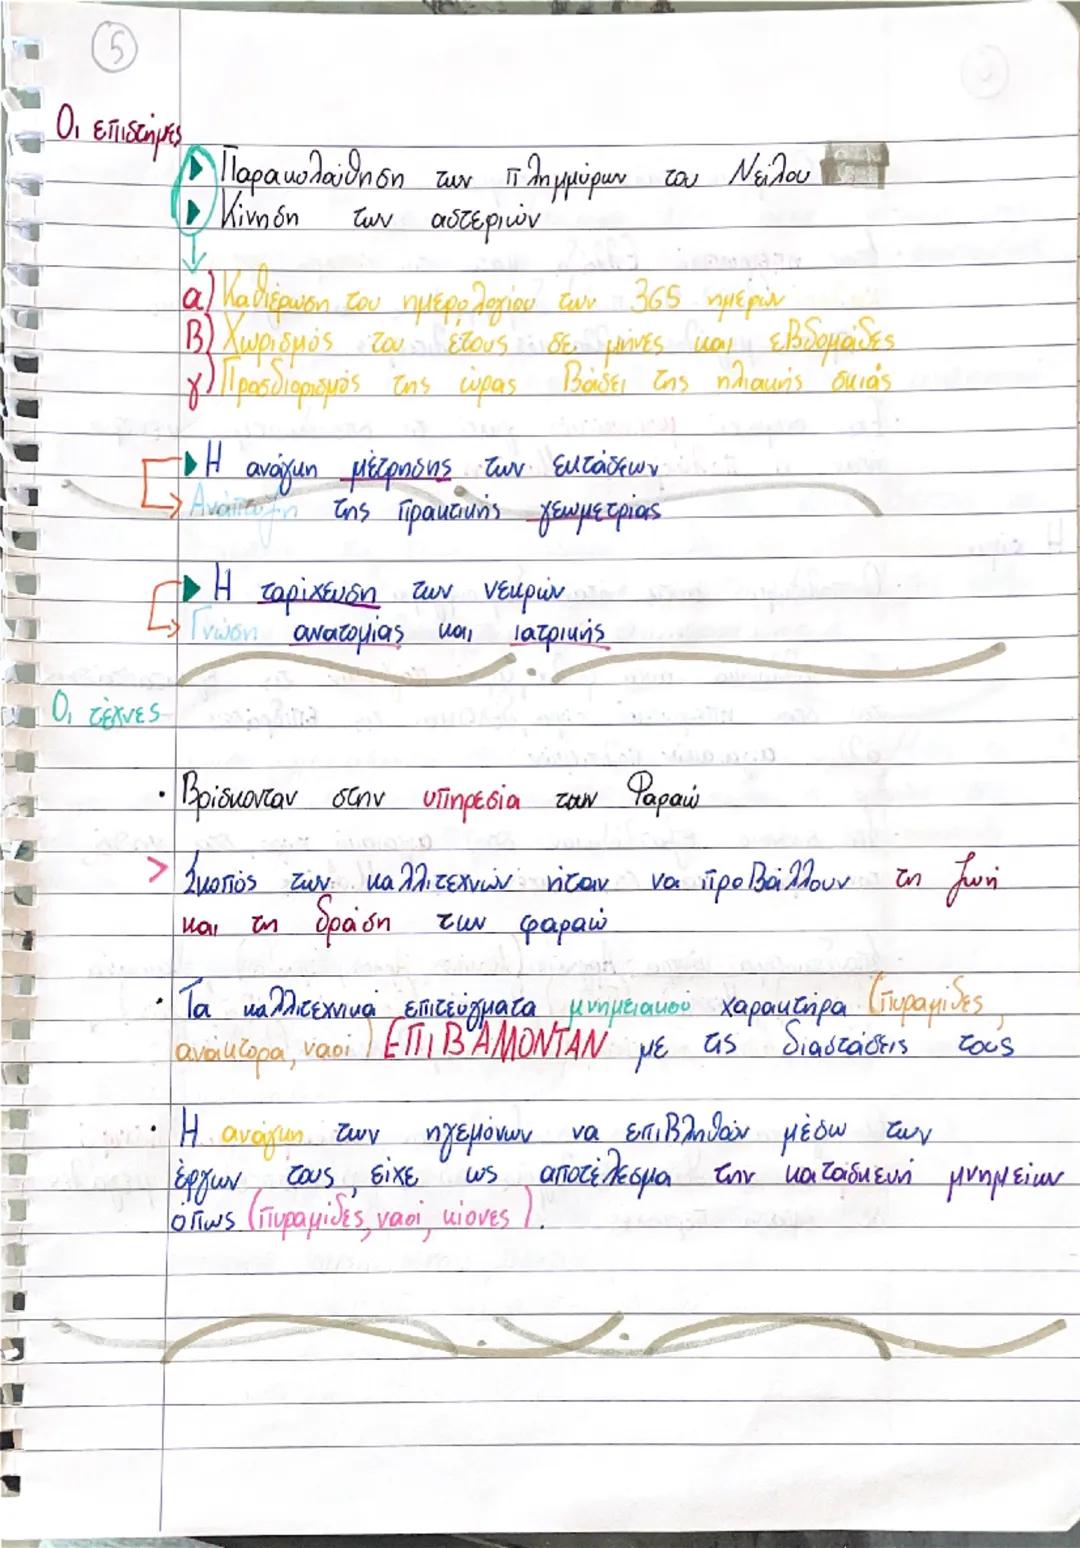 5
Οι επιστήμες
Παρακολούθηση των πλημμύρων του Νείλου
Κίνηση των αστεριών
α) Καθιέρωση του ημερολογίου των 365 ημερών
Β) Χωρισμός του έτους σε μήνες και εβδομάδες
γ) Προσδιορισμός της ώρας βάσει της ηλιακής σκιάς
Η ανάγκη μέτρησης των εκτάσεων
Ανάπτυξη της πρακτικής γεωμετρίας
Η ταρίχευση των νεκρών
Γνώση ανατομίας και ιατρικής
Οι τέχνες
· Βρίσκονταν στην υπηρεσία των Φαραώ
> Σκοπός των καλλιτεχνών ήταν να προβάλλουν τη ζωή
και τη δράση των φαραώ
· Τα καλλιτεχνικά επιτεύγματα μνημειακού χαρακτήρα (πυραμίδες,
ανάκτορα, ναοί) ΕΠΙΒΆΛΛΟΝΤΑΝ με τις διαστάσεις τους
· Η ανάγκη των ηγεμόνων να επιβληθούν μέσω των
έργων τους, είχε ως αποτέλεσμα την κατασκευή μνημείων
όπως (πυραμίδες, ναοί, κίονες).